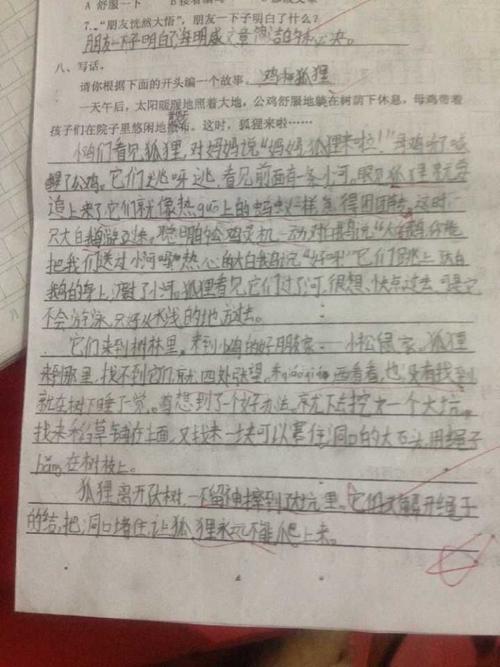 A 舒服一下
7.“朋友恍然大悟”，朋友一下子明白了什么？
朋友一下子明白了
八、写话。
请你根据下面的开头编一个故事。鸡和狐狸
一天午后，太阳暖暖地照着大地，公鸡舒服地躺在树荫下休息，母鸡带着
孩子们在院子里悠闲地散步。这时，狐狸来啦……
小鸡们看见狐狸，对妈妈说“妈妈，狐狸来啦！”母鸡
醒了公鸡。它们逃呀逃，看见前面有一条小河，眼见狐狸就要
追上来了它们就像热guō上的蚂蚁一样急得团团转。这时，一
只大白鹅游过来，聪明的公鸡灵机一动对白鹅说“大白鹅你能
把我们送过小河吗？”热心的大白鹅说“好呀”它们跳上大白
鹅的身上，过了小河。狐狸看见它们过了河，很想快点过去，可是它
不会游泳，只好从水浅的地方过去。
它们来到树林里，来到小鸡的好朋友家——小松鼠家。狐狸
来到那里，找不到它们就四处张望，东qiáoqiáo西看看，也没有找到
就在树下睡了觉。鸡想到了个好办法，就下去挖了一个大坑，
找来稻草铺在上面，又找来一块可以塞住洞口的大石头用绳子
bǎng在树枝上。
狐狸离开大树，一不留神摔到大坑里。它们解开绳子
的结，把洞口堵住，让狐狸永远不能爬上来。